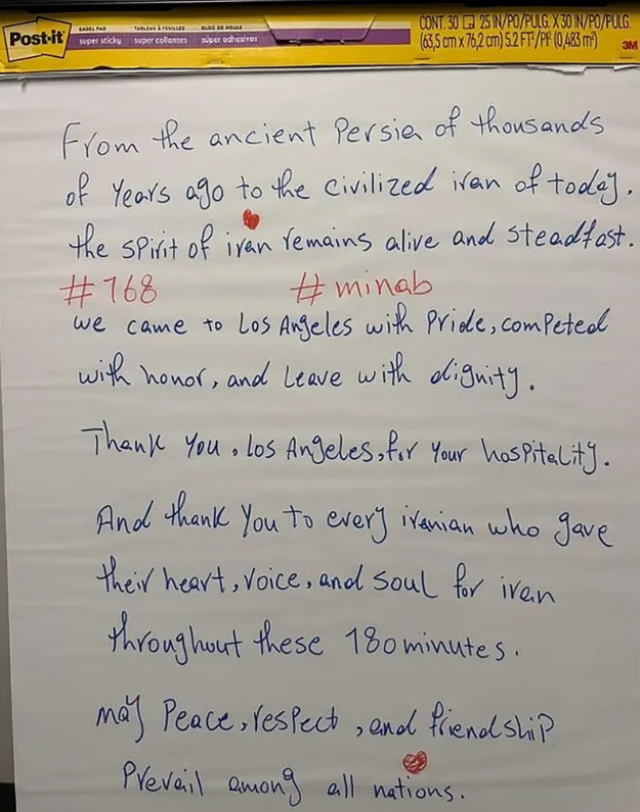 Post-it
EASEL PAD TABLEAU À FEUILLES BLOC DE HOJAS
super sticky super collantes súper adhesivas
CONT. 30 25 IN/PO/PULG. X 30 IN/PO/PULG.
(63,5 cm x 76,2 cm) 5.2 FT²/PI² (0,483 m²) 3M
From the ancient Persia of thousands
of years ago to the civilized iran of today.
the spirit of iran remains alive and steadfast.
#168 #minab
we came to Los Angeles with pride, competed
with honor, and Leave with dignity.
Thank you, Los Angeles, for your hospitality.
And thank you to every iranian who gave
their heart, voice, and soul for iran
throughout these 180 minutes.
may peace, respect, and friendship
prevail among all nations.